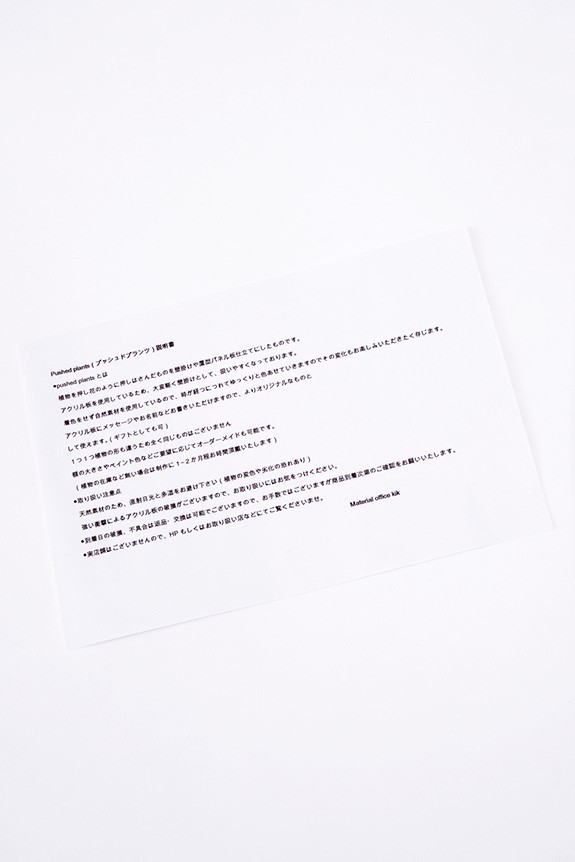 Pushed plants ( プッシュドプランツ ) 説明書
●pushed plants とは
植物を押し花のように押しはさんだものを壁掛けや薄型パネル板仕立てにしたものです。
アクリル板を使用しているため、大変軽く壁掛けとして、扱いやすくなっております。
着色をせず自然素材を使用しているので、時が経つにつれてゆっくりと色あせていきますのでその変化もお楽しみいただきたく存じます。
アクリル板にメッセージやお名前などお書きいただけますので、よりオリジナルなものと
して使えます。( ギフトとしても可 )
1つ1つ植物の形も違うため全く同じものはございません
額の大きさやペイント色などご要望に応じてオーダーメイドも可能です。
( 植物の在庫など無い場合は制作に 1~2 か月程お時間頂戴いたします )
●取り扱い注意点
天然素材のため、直射日光と多湿をお避け下さい ( 植物の変色や劣化の恐れあり )
強い衝撃によるアクリル板の破損がございますので、お取り扱いにはお気をつけください。
●到着日の破損、不具合は返品・交換は可能でございますので、お手数ではございますが商品到着次第のご確認をお願いいたします。
●実店舗はございませんので、HP もしくはお取り扱い店などにてご覧くださいませ。
Material office kik